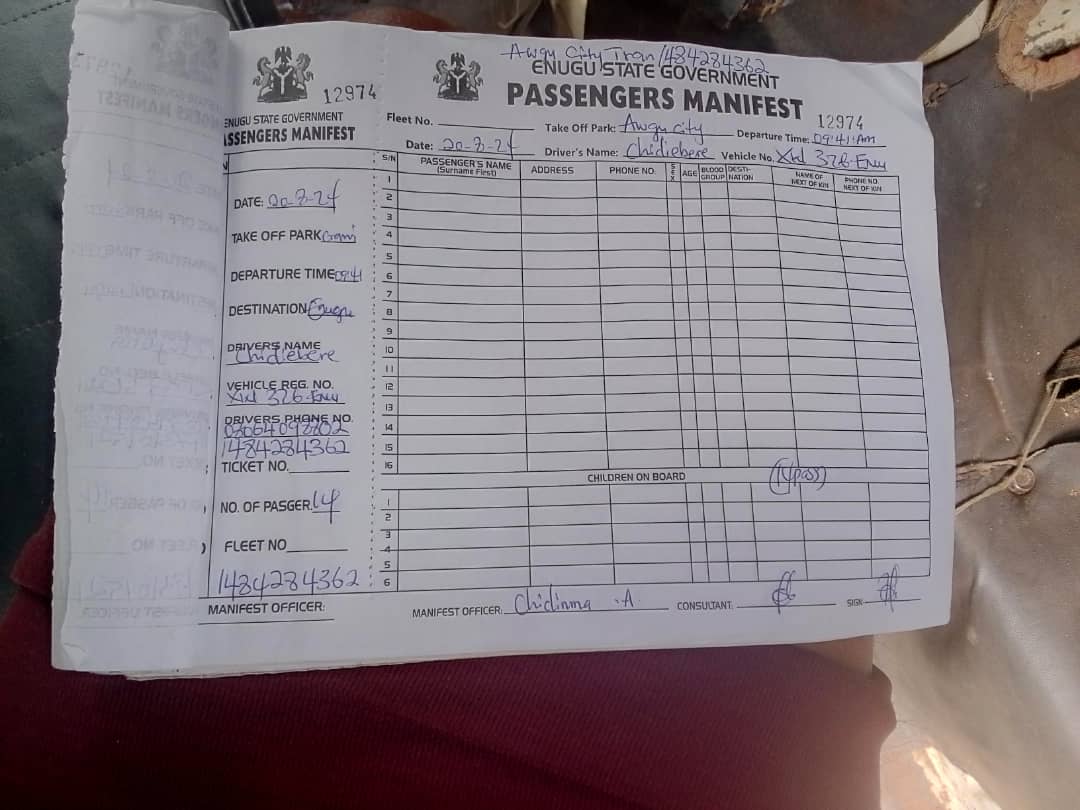 12974
ENUGU STATE GOVERNMENT
ASSENGERS MANIFEST
DATE: 20-8-24
TAKE OFF PARK
DEPARTURE TIME 09:41
DESTINATION Enugu
DRIVERS NAME
Chidiebere
VEHICLE REG. NO.
326-Enu
DRIVERS PHONE NO.
1484284362
TICKET NO.
NO. OF PASGER. 14
FLEET NO
1484284362
MANIFEST OFFICER:
Awgu City Tran/484284362
ENUGU STATE GOVERNMENT
PASSENGERS MANIFEST
12974
Fleet No. Take Off Park: Awgu city Departure Time: 09:41:Am
Date: 20-8-24 Driver's Name: Chidiebere Vehicle No. 326-Enu
S/N PASSENGER'S NAME (Surname First) ADDRESS PHONE NO. SEX AGE BLOOD GROUP DESTI-NATION NAME OF NEXT OF KIN PHONE NO. NEXT OF KIN
1
2
3
4
5
6
7
8
9
10
11
12
13
14
15
16
CHILDREN ON BOARD (14pass)
1
2
3
4
5
6
MANIFEST OFFICER: Chidinma .A CONSULTANT: SIGN